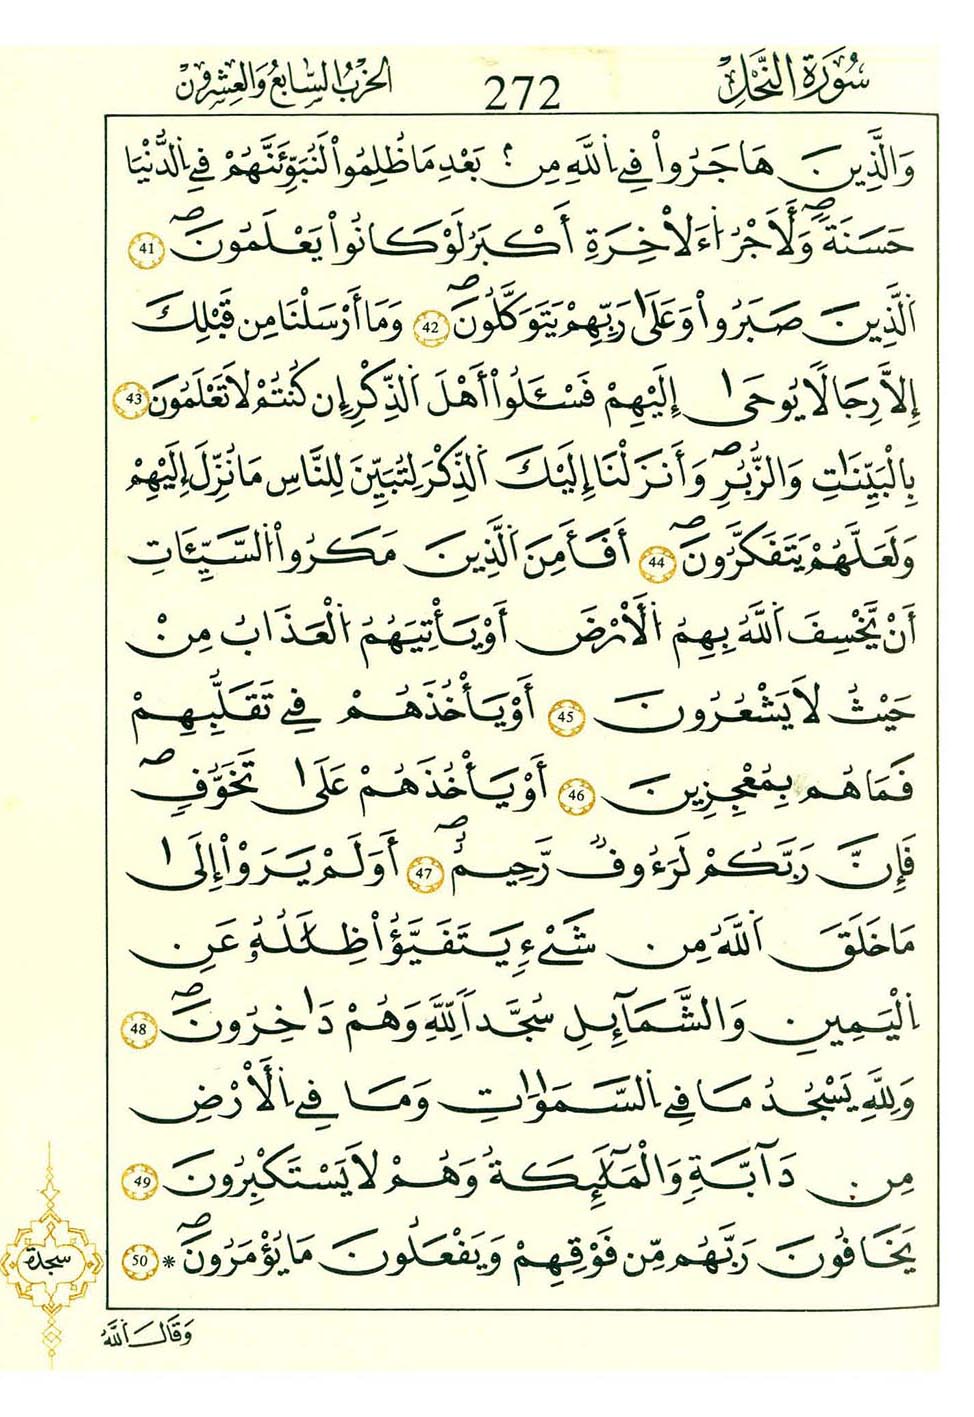 سُورَةُ النَّحْلِ 272 الحِزْبُ السَّابِعُ وَالْعِشْرُونَ
وَالَّذِينَ هَاجَرُواْ فِے اِ۬للَّهِ مِنۢ بَعْدِ مَا ظُلِمُواْ لَنُبَوِّئَنَّهُمْ فِے اِ۬لدُّنْيَا
حَسَنَةٗۖ وَلَأَجْرُ اُ۬ءَلَاْخِرَةِ أَكْبَرُ لَوْ كَانُواْ يَعْلَمُونَۖ 41
اَ۬لَّذِينَ صَبَرُواْ وَعَلَىٰ رَبِّهِمْ يَتَوَكَّلُونَۖ 42 وَمَا أَرْسَلْنَا مِن قَبْلِكَ
إِلَّا رِجَالاٗ يُوحَىٰ إِلَيْهِمْ فَسْـَٔلُواْ أَهْلَ اَ۬لذِّكْرِ إِن كُنتُمْ لَا تَعْلَمُونَ 43
بِالْبَيِّنَٰتِ وَالزُّبُرِۖ وَأَنزَلْنَا إِلَيْكَ اَ۬لذِّكْرَ لِتُبَيِّنَ لِلنَّاسِ مَا نُزِّلَ إِلَيْهِمْ
وَلَعَلَّهُمْ يَتَفَكَّرُونَۖ 44 أَفَأَمِنَ اَ۬لَّذِينَ مَكَرُواْ اُ۬لسَّيِّـَٔاتِ
أَنْ يَّخْسِفَ اَ۬للَّهُ بِهِمُ اُ۬لْأَرْضَ أَوْ يَأْتِيَهُمُ اُ۬لْعَذَابُ مِنْ
حَيْثُ لَا يَشْعُرُونَ 45 أَوْ يَأْخُذَهُمْ فِے تَقَلُّبِهِمْ
فَمَا هُم بِمُعْجِزِينَ 46 أَوْ يَأْخُذَهُمْ عَلَىٰ تَخَوُّفٖۖ
فَإِنَّ رَبَّكُمْ لَرَءُوفٞ رَّحِيمٌۖ 47 أَوَلَمْ يَرَوْاْ إِلَىٰ
مَا خَلَقَ اَ۬للَّهُ مِن شَےْءٖ يَتَفَيَّؤُاْ ظِلَٰلُهُۥ عَنِ
اِ۬لْيَمِينِ وَالشَّمَآئِلِ سُجَّداٗ لِّلَّهِ وَهُمْ دَٰخِرُونَۖ 48
وَلِلَّهِ يَسْجُدُ مَا فِے اِ۬لسَّمَٰوَٰتِ وَمَا فِے اِ۬لْأَرْضِ
مِن دَآبَّةٖ وَالْمَلَٰٓئِكَةُ وَهُمْ لَا يَسْتَكْبِرُونَ 49
يَخَافُونَ رَبَّهُم مِّن فَوْقِهِمْ وَيَفْعَلُونَ مَا يُؤْمَرُونَۖ * 50
سجدة
وَقَالَ اَ۬للَّهُ